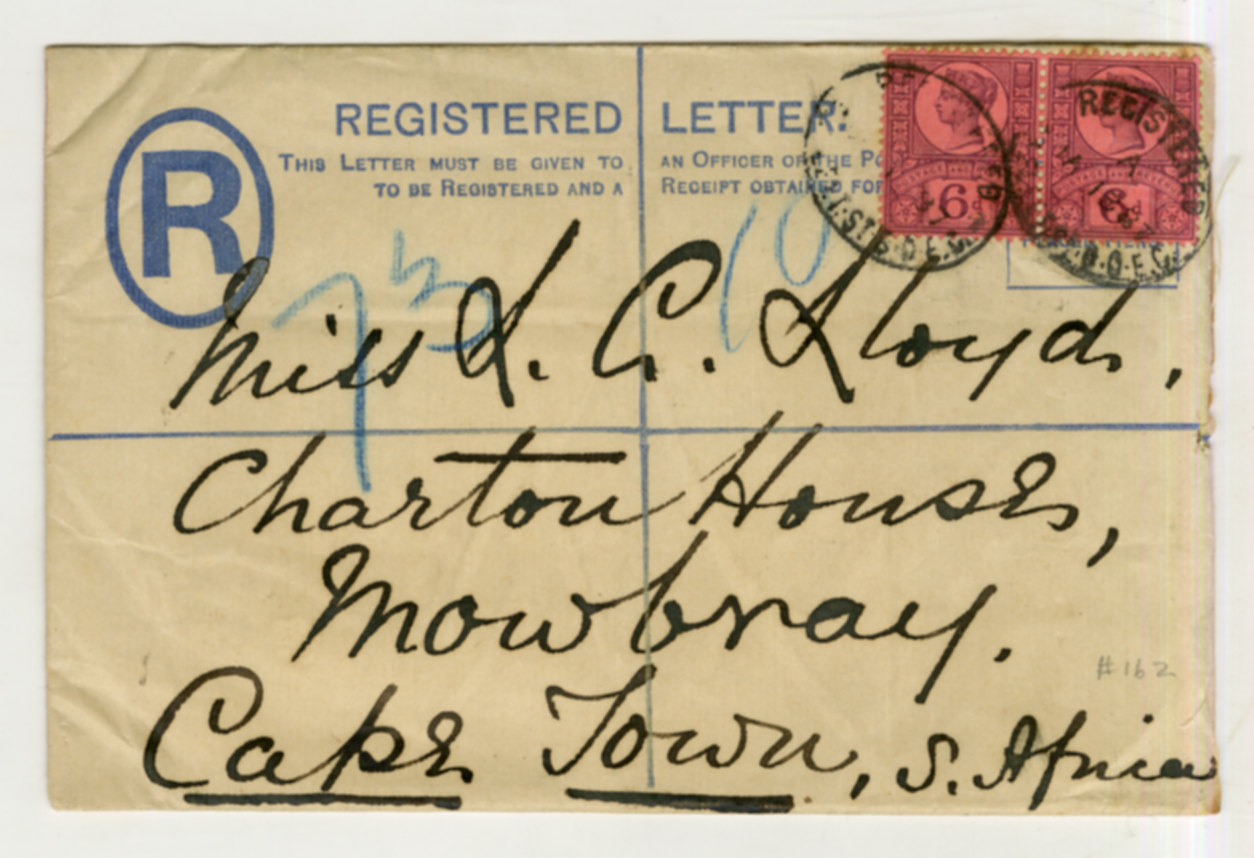 REGISTERED LETTER.
THIS LETTER MUST BE GIVEN TO AN OFFICER OF THE
TO BE REGISTERED AND A RECEIPT OBTAINED FOR
R
6d
REGISTERED
73
10
Miss L. C. Lloyd,
Charton House,
Mowbray.
Cape Town, S. Africa
#162